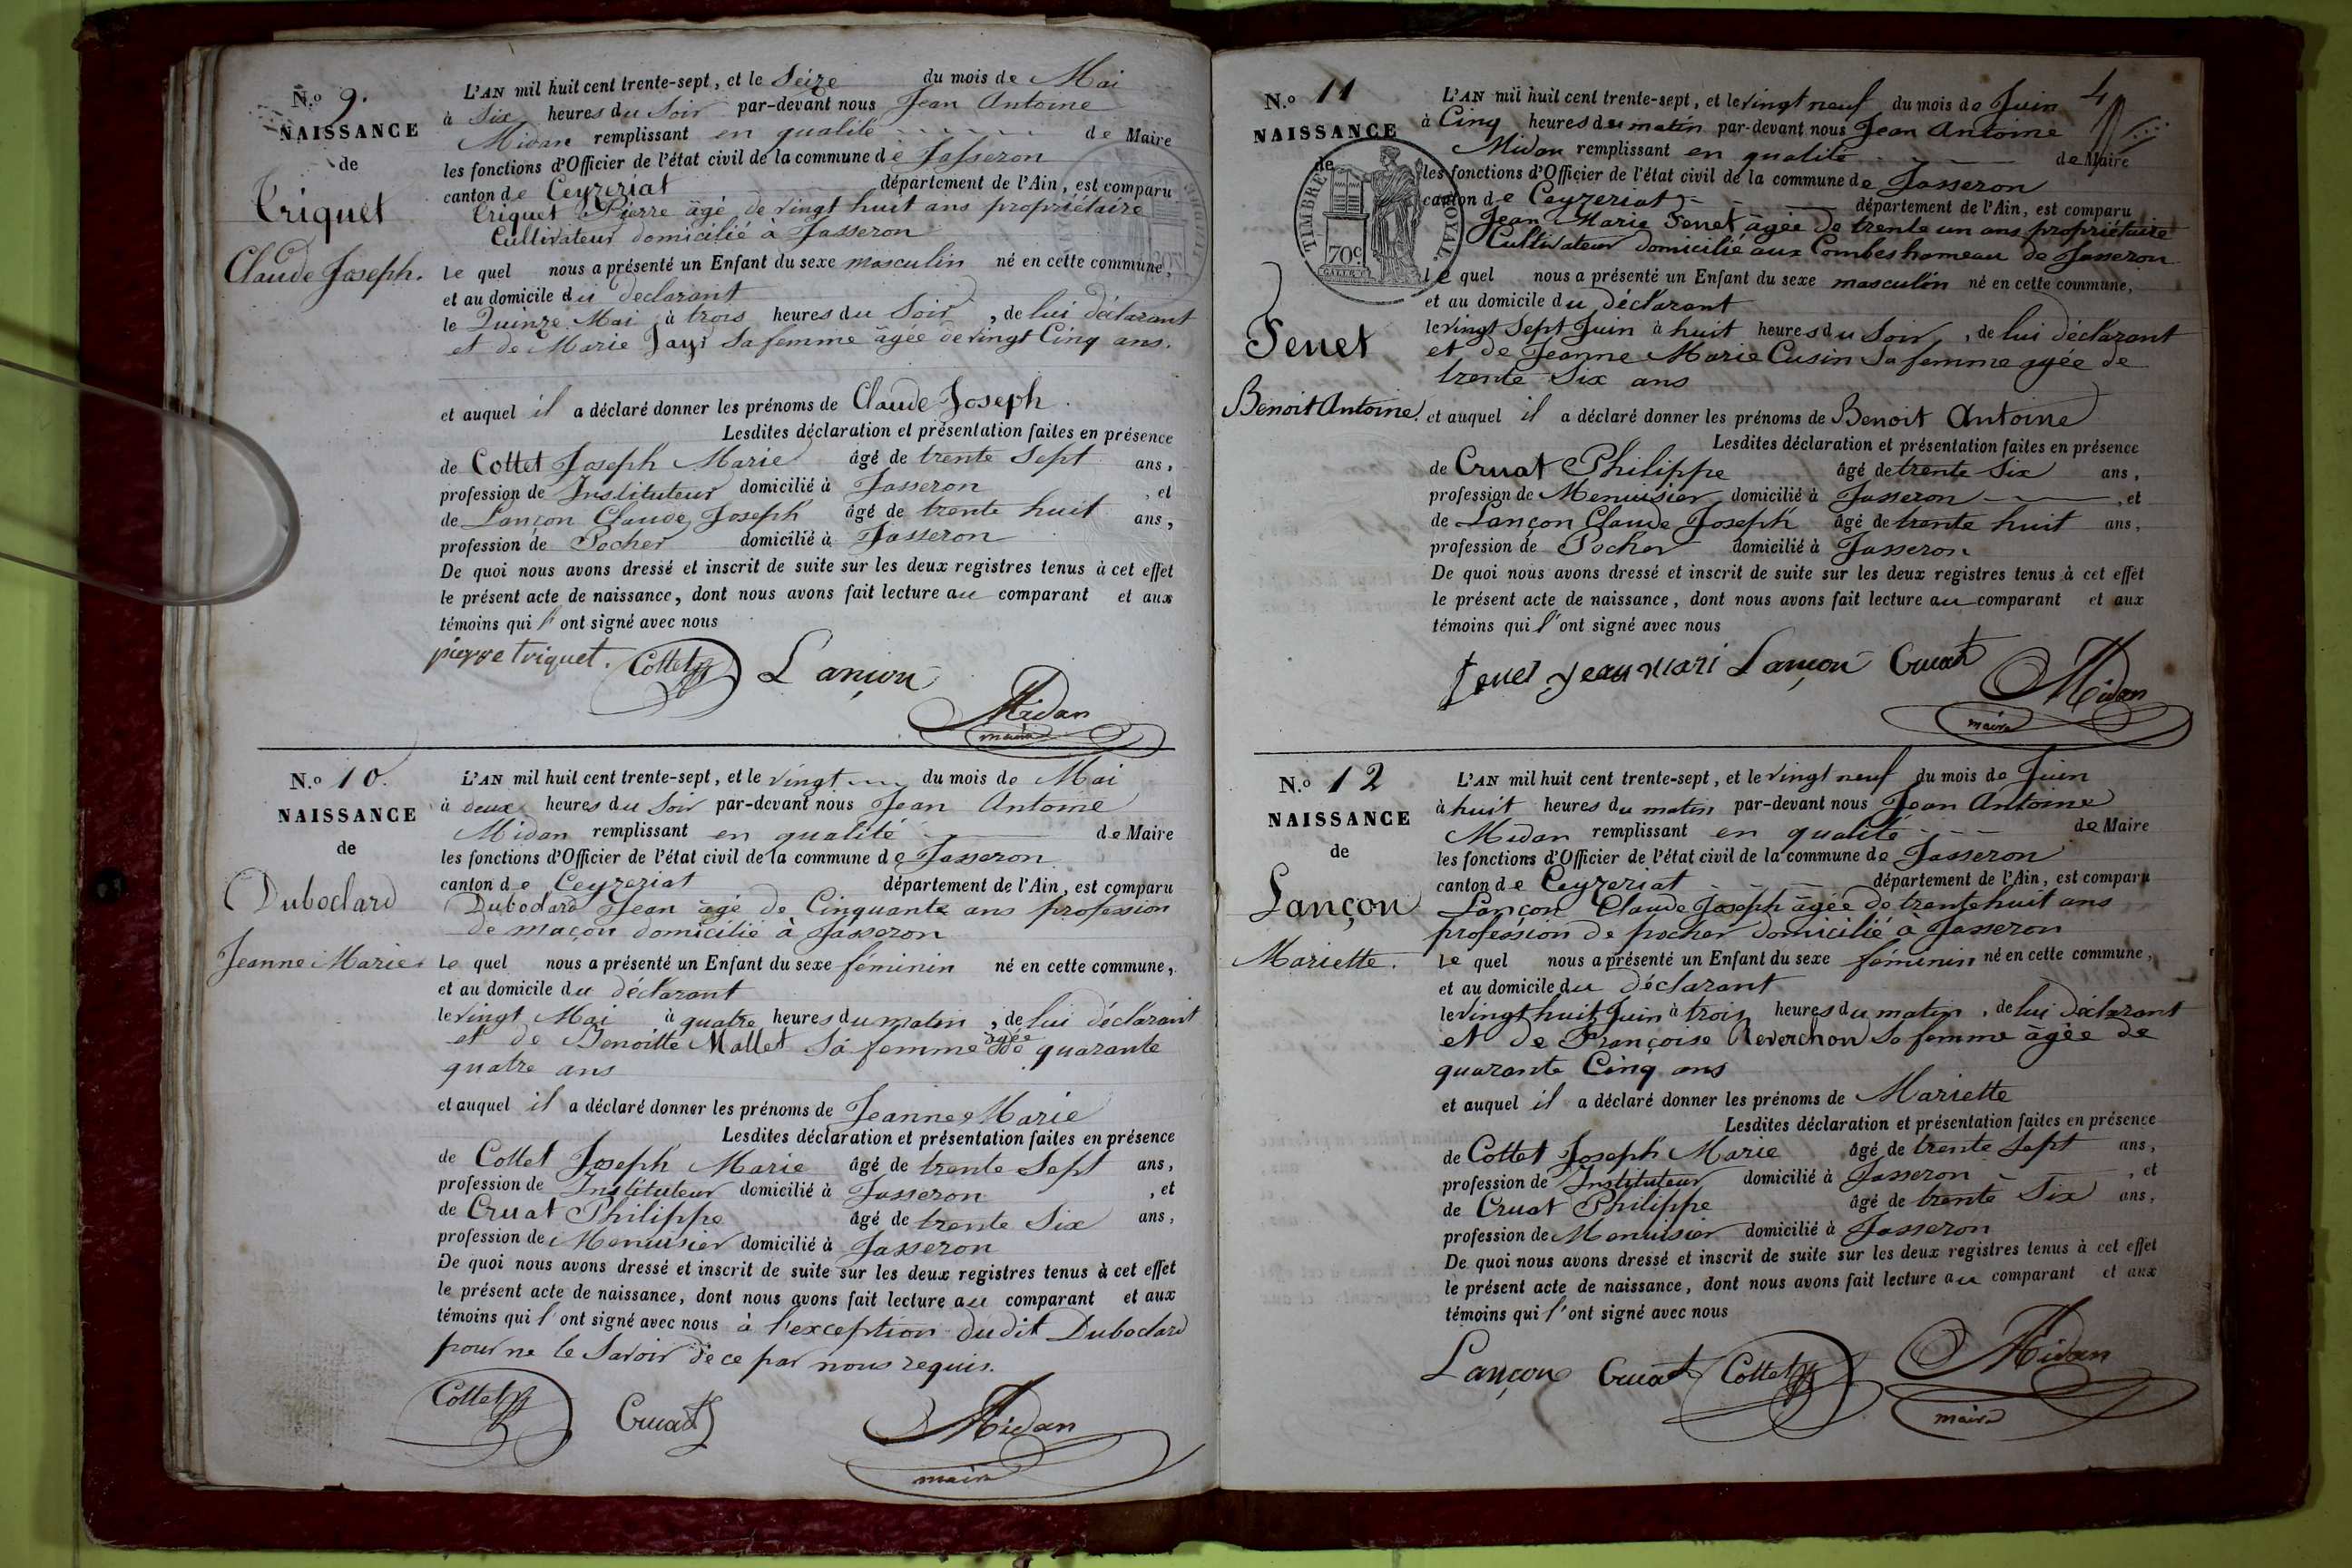 N.o 9.
NAISSANCE
de
Triquet
Claude Joseph.
L'AN mil huit cent trente-sept, et le Seize du mois de Mai
à Six heures du Soir par-devant nous Jean Antoine
Midan remplissant en qualité de Maire
les fonctions d'Officier de l'état civil de la commune de Jasseron
canton de Ceyzeriat département de l'Ain, est comparu
Triquet Pierre âgé de vingt huit ans propriétaire
Cultivateur domicilié à Jasseron
le quel nous a présenté un Enfant du sexe masculin né en cette commune,
et au domicile du declarant
le Quinze Mai à trois heures du Soir, de lui déclarant
et de Marie Jayr Sa femme âgée de vingt Cinq ans.
et auquel il a déclaré donner les prénoms de Claude Joseph.
Lesdites déclaration et présentation faites en présence
de Cottet Joseph Marie âgé de trente Sept ans,
profession de Instituteur domicilié à Jasseron, et
de Lançon Claude Joseph âgé de trente huit ans,
profession de Pocher domicilié à Jasseron
De quoi nous avons dressé et inscrit de suite sur les deux registres tenus à cet effet
le présent acte de naissance, dont nous avons fait lecture au comparant et aux
témoins qui l'ont signé avec nous
pierre triquet. Cottet Lançon
Midan
maire
N.o 10.
NAISSANCE
de
Duboclard
Jeanne Marie
L'AN mil huit cent trente-sept, et le vingt du mois de Mai
à deux heures du Soir par-devant nous Jean Antoine
Midan remplissant en qualité de Maire
les fonctions d'Officier de l'état civil de la commune de Jasseron
canton de Ceyzeriat département de l'Ain, est comparu
Duboclard Jean âgé de Cinquante ans profession
de maçon domicilié à Jasseron
le quel nous a présenté un Enfant du sexe féminin né en cette commune,
et au domicile du déclarant
le vingt Mai à quatre heures du matin, de lui déclarant
et de Benoitte Mallet Sa femme âgée de quarante
quatre ans
et auquel il a déclaré donner les prénoms de Jeanne Marie
Lesdites déclaration et présentation faites en présence
de Cottet Joseph Marie âgé de trente Sept ans,
profession de Instituteur domicilié à Jasseron, et
de Cruat Philippe âgé de trente Six ans,
profession de Menuisier domicilié à Jasseron
De quoi nous avons dressé et inscrit de suite sur les deux registres tenus à cet effet
le présent acte de naissance, dont nous avons fait lecture au comparant et aux
témoins qui l'ont signé avec nous à l'exception dudit Duboclard
pour ne le Savoir de ce par nous requis.
Cottet Cruat Midan
maire
4
N.o 11
NAISSANCE
de
TIMBRE ROYAL.
70c.
Fenet
Benoit Antoine.
L'AN mil huit cent trente-sept, et le vingt neuf du mois de Juin
à Cinq heures du matin par-devant nous Jean Antoine
Midan remplissant en qualité de Maire
les fonctions d'Officier de l'état civil de la commune de Jasseron
canton de Ceyzeriat département de l'Ain, est comparu
Jean Marie Fenet âgée de trente un ans propriétaire
Cultivateur domicilié aux Combes hameau de Jasseron
le quel nous a présenté un Enfant du sexe masculin né en cette commune,
et au domicile du déclarant
le vingt Sept Juin à huit heures du Soir, de lui déclarant
et de Jeanne Marie Cusin Sa femme agée de
trente Six ans
et auquel il a déclaré donner les prénoms de Benoit Antoine
Lesdites déclaration et présentation faites en présence
de Cruat Philippe âgé de trente Six ans,
profession de Menuisier domicilié à Jasseron, et
de Lançon Claude Joseph âgé de trente huit ans,
profession de Pocher domicilié à Jasseron
De quoi nous avons dressé et inscrit de suite sur les deux registres tenus à cet effet
le présent acte de naissance, dont nous avons fait lecture au comparant et aux
témoins qui l'ont signé avec nous
fenet jean mari Lançon Cruat
Midan
maire
N.o 12
NAISSANCE
de
Lançon
Mariette.
L'AN mil huit cent trente-sept, et le vingt neuf du mois de Juin
à huit heures du matin par-devant nous Jean Antoine
Midan remplissant en qualité de Maire
les fonctions d'Officier de l'état civil de la commune de Jasseron
canton de Ceyzeriat département de l'Ain, est comparu
Lançon Claude Joseph âgée de trente huit ans
profession de pocher domicilié à Jasseron
le quel nous a présenté un Enfant du sexe féminin né en cette commune,
et au domicile du déclarant
le vingt huit Juin à trois heures du matin, de lui déclarant
et de Françoise Reverchon Sa femme âgée de
quarante Cinq ans
et auquel il a déclaré donner les prénoms de Mariette
Lesdites déclaration et présentation faites en présence
de Cottet Joseph Marie âgé de trente Sept ans,
profession de Instituteur domicilié à Jasseron, et
de Cruat Philippe âgé de trente Six ans,
profession de Menuisier domicilié à Jasseron
De quoi nous avons dressé et inscrit de suite sur les deux registres tenus à cet effet
le présent acte de naissance, dont nous avons fait lecture au comparant et aux
témoins qui l'ont signé avec nous
Lançon Cruat Cottet Midan
maire